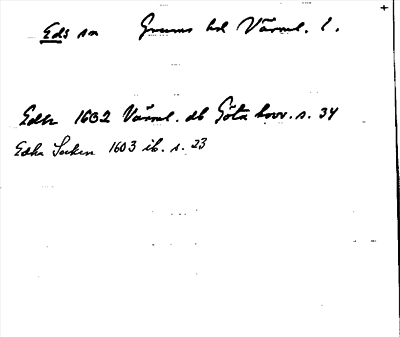 Eds sn Grums hd Värml. l.
Edh 1602 Värml. db Göta hovr. s. 34
Edhz Socken 1603 ib. s. 23